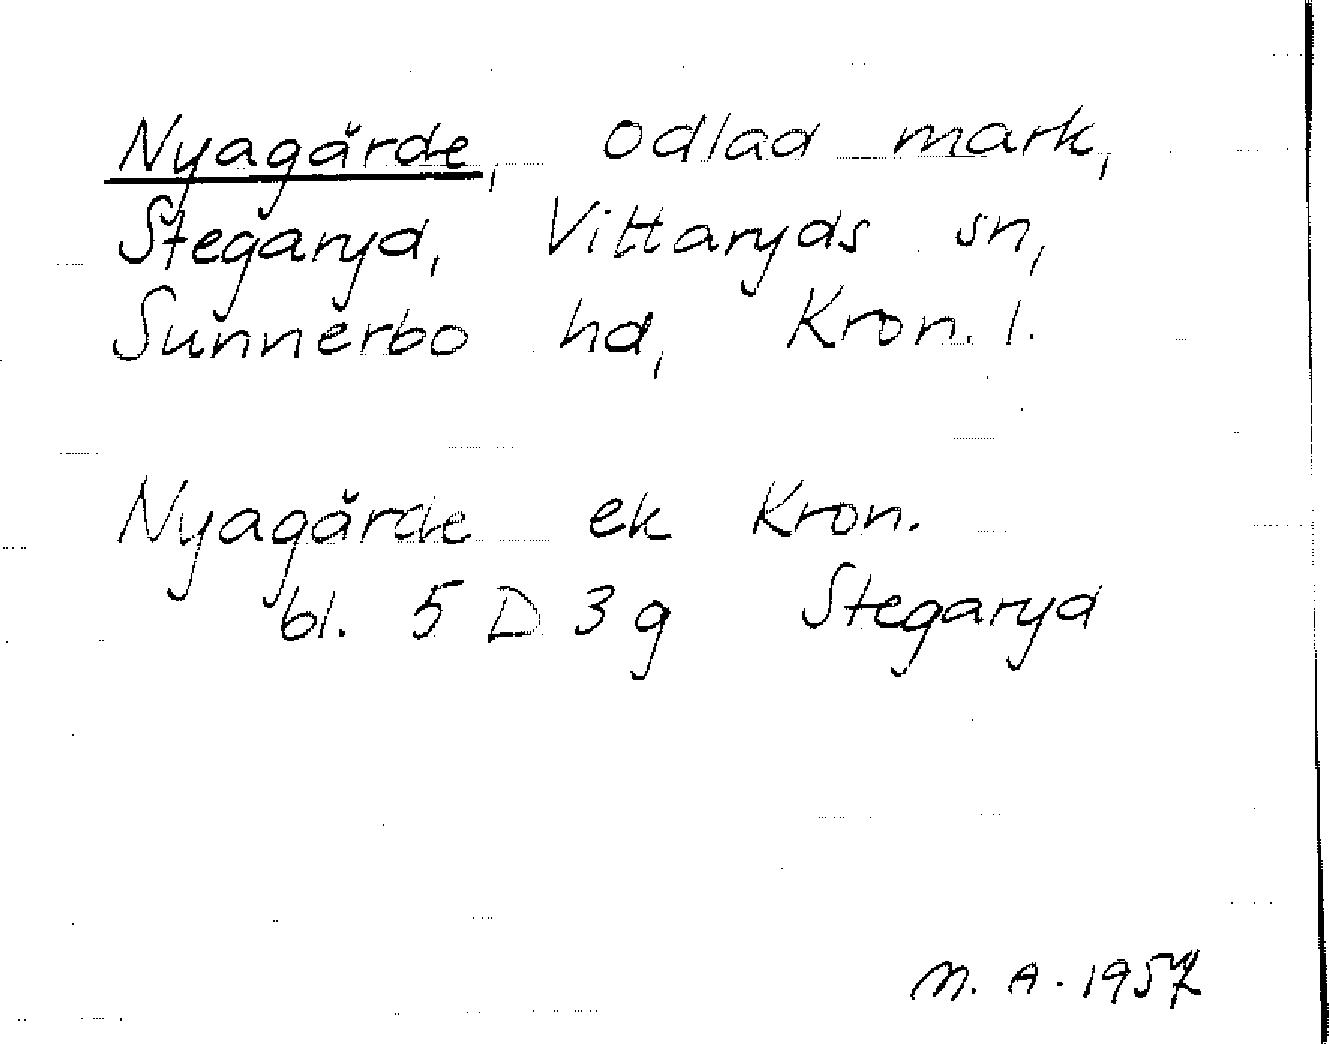 Nyagärde, odlad mark,
Stegaryd, Vittaryds sn,
Sunnerbo hd, Kron. l.
Nyagärde ek Kron.
bl. 5 D 3 g Stegaryd
M. A. 1957